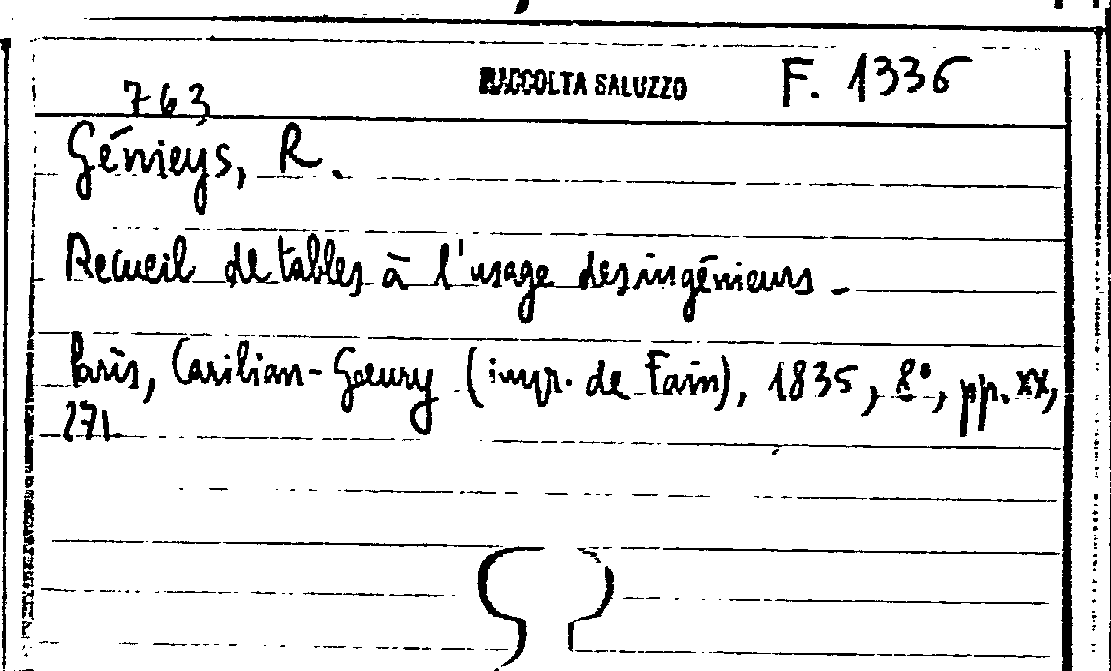 RACCOLTA SALUZZO F. 1336
763
Génieys, R.
Recueil de tables à l'usage des ingénieurs. -
Paris, Carilian-Gœury (impr. de Fain), 1835, 8°, pp. XX,
271.